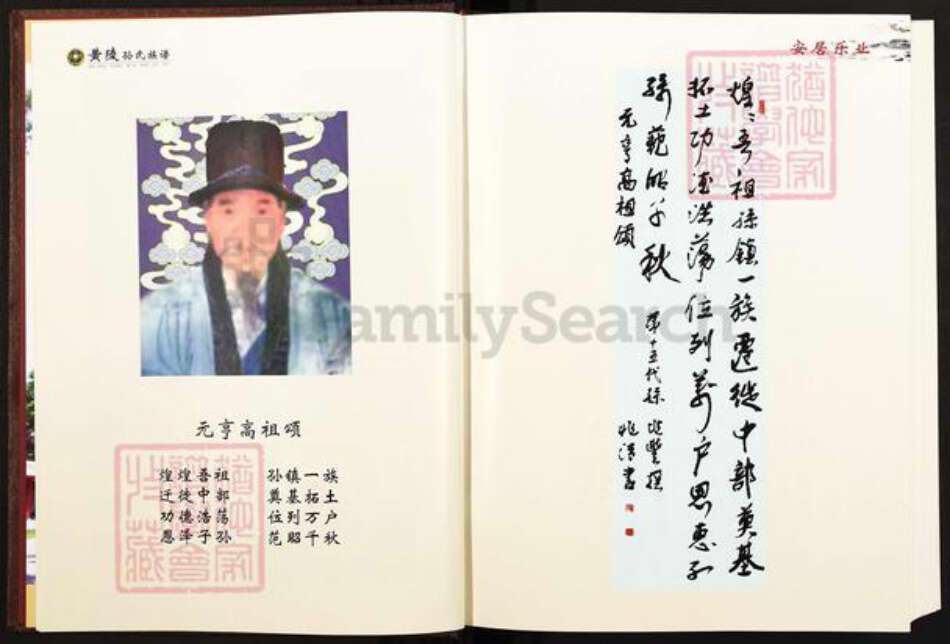 黄陵孙氏族谱
元亨高祖颂
煌煌吾祖 孙镇一族
迁徙中部 奠基拓土
功德浩荡 位列万户
恩泽子孙 范昭千秋
安居乐业
煌〻吾祖孫鎮一族遷徙中部奠基
拓土功德浩蕩位列萬户恩惠子
孫範昭千秋
元亨高祖頌
第十五代孫
FamilySearch